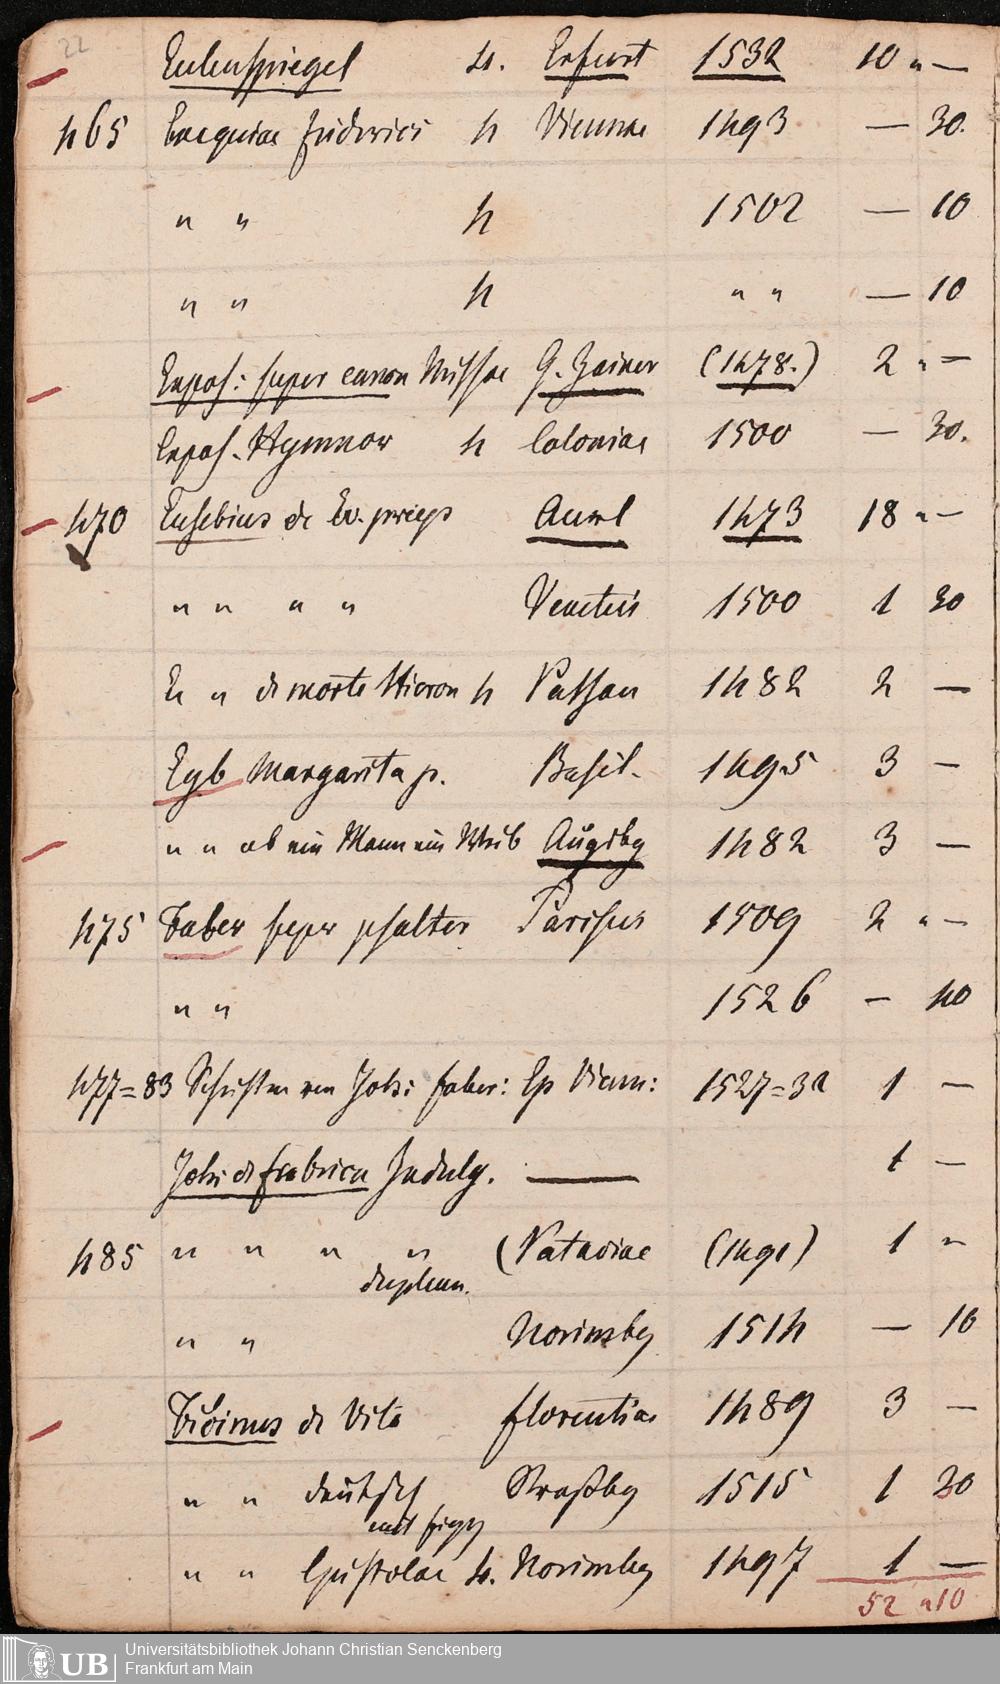 22
Eulenspiegel 4. Erfurt 1532 10 " —
465 Exequiae Friderici 4 Viennae 1493 — 30.
" " 4 1502 — 10
" " 4 " " — 10
Expos: super canon Missae G. Zainer (1478.) 2 " —
Expos. Hymnor 4 Coloniae 1500 — 30.
470 Eusebius de Ev. praep 1473 18 " —
" " " " Venetiis 1500 1 30
Eu " de morte Hieron 4 Passau 1482 2 —
Eyb Margarita p. Basil. 1495 3 —
" " ob ein Mann ein Weib Augsbg 1482 3 —
475 Faber super psalter Parisiis 1509 2 " —
" " 1526 — 40
477=83 Schriften von Johs: Faber: Ep Vienn: 1527=32 1 —
Johs de Fabrica Indulg. — 1 —
485 " " " " (Pataviae (1491) 1 "
duplum.
" " Norimbg 1514 — 10
Ficinus de Vita Florentiae 1489 3 —
" " deutsch Straßbg 1515 1 30
mit figg
" " Epistolae 4. Norimbg 1497 1 —
52 " 10
UB Universitätsbibliothek Johann Christian Senckenberg
Frankfurt am Main